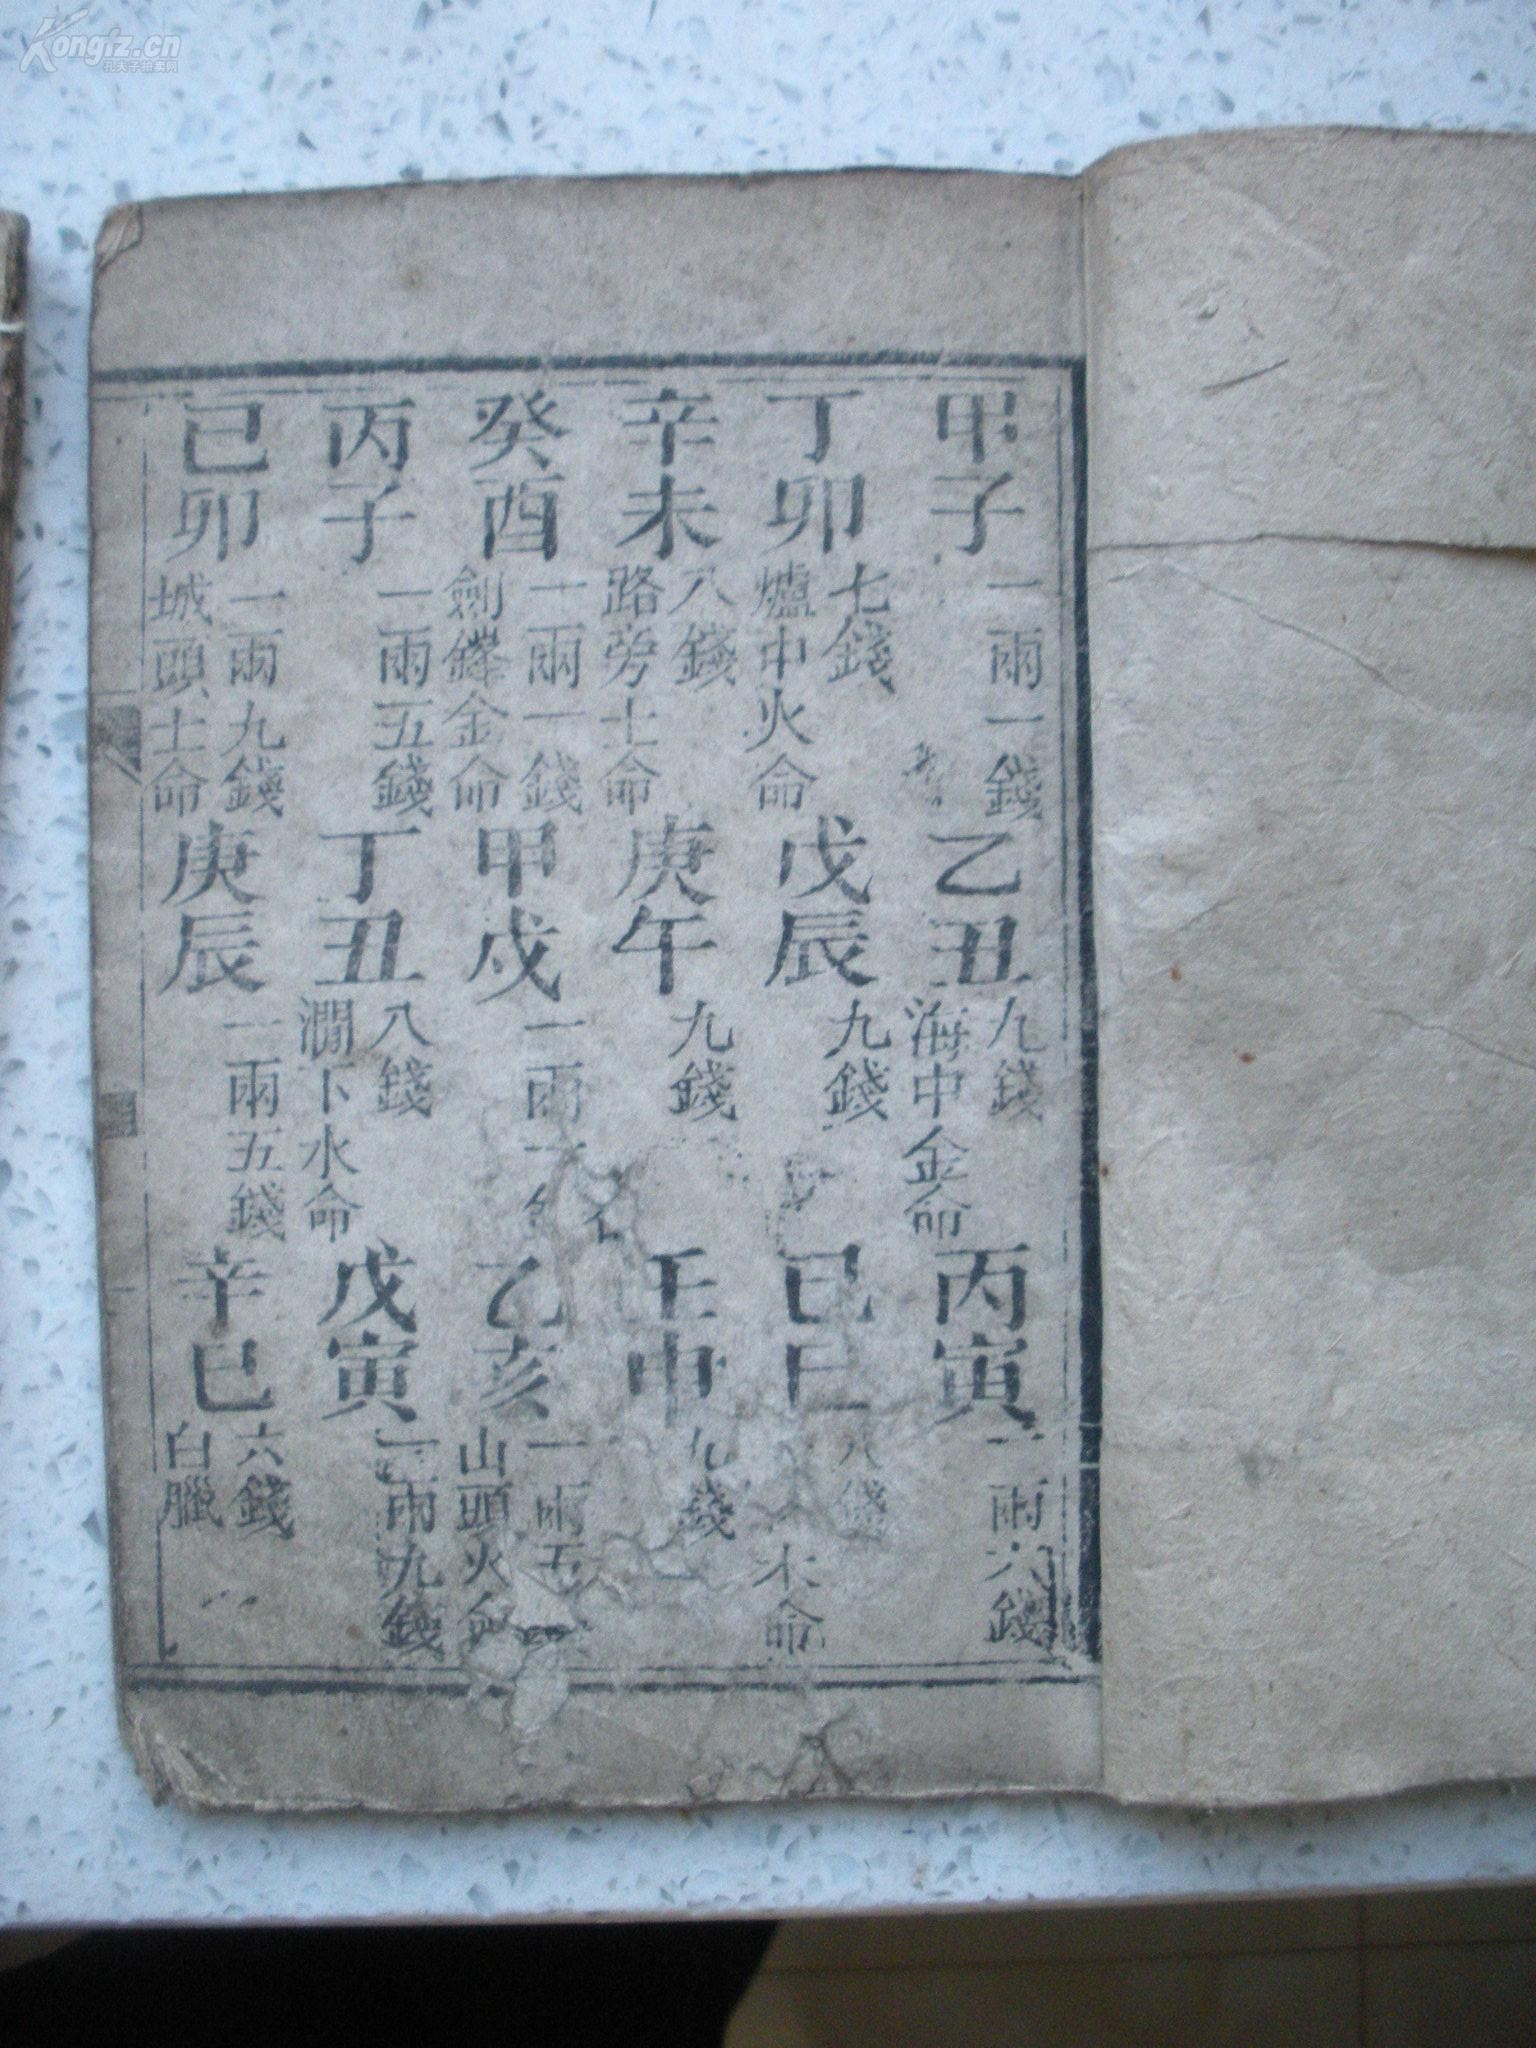 Kongfz.cn
孔夫子拍卖网
甲子 一兩一錢 乙丑 九錢 海中金命 丙寅 一兩六錢
丁卯 七錢 爐中火命 戊辰 九錢 己巳 八錢 木命
辛未 八錢 路旁土命 庚午 九錢 壬申 九錢
癸酉 一兩一錢 劍鋒金命 甲戌 一兩一 乙亥 一兩五 山頭火命
丙子 一兩五錢 丁丑 八錢 澗下水命 戊寅 一兩九錢
己卯 一兩九錢 城頭土命 庚辰 一兩五錢 辛巳 六錢 白臘